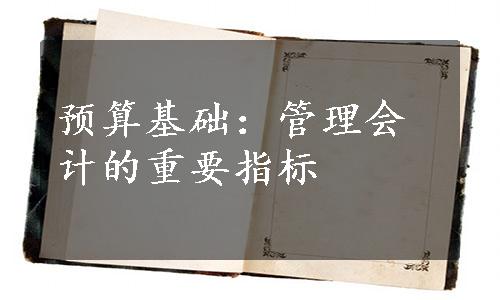 预算基础：管理会
计的重要指标